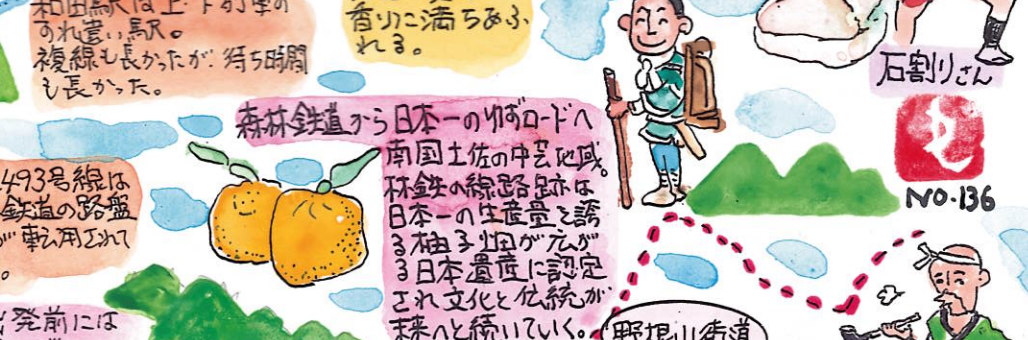 和田駅は上・下列車の
すれ違い駅。
複線も長かったが、待ち時間
も長かった。
香りに満ちあふ
れる。
石割りさん
NO.136
森林鉄道から日本一のゆずロードへ
南国土佐の中芸地域。
林鉄の線路跡は
日本一の生産量を誇
る柚子畑が広が
る日本遺産に認定
され文化と伝統が
未来へと続いていく。
493号線は
鉄道の路盤
が転用されて
。
発前には
野根山街道